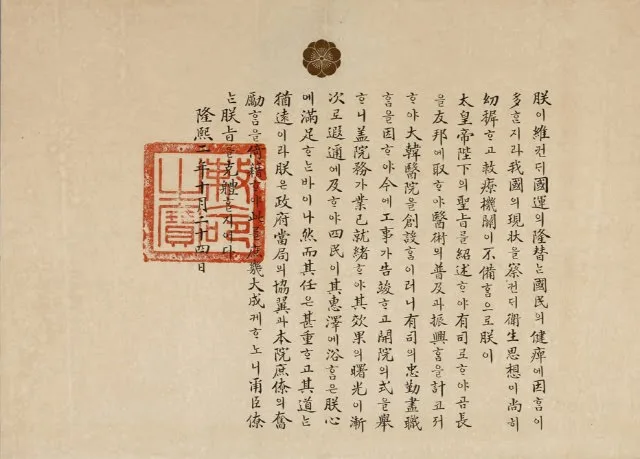 朕이維컨ᄃᆡ國運의隆替ᄂᆞᆫ國民의健瘁에因ᄒᆞᆷ이
多ᄒᆞᆫ지라我國의現狀을察컨ᄃᆡ衛生思想이尙히
幼穉ᄒᆞ고救療機關이不備ᄒᆞᆷ으로朕이
太皇帝陛下의聖旨ᄅᆞᆯ紹述ᄒᆞ야有司로ᄒᆞ야곰長
을友邦에取ᄒᆞ야醫術의普及과振興ᄒᆞᆷ을計코져
ᄒᆞ야大韓醫院을創設ᄒᆞᆷ이러니有司의忠勤盡職
ᄒᆞᆷ을因ᄒᆞ야今에工事가告竣ᄒᆞ고開院의式을擧
ᄒᆞ니盖院務가業已就緖ᄒᆞ야其效果의曙光이漸
次로遐邇에及ᄒᆞ야四民이其惠澤에浴ᄒᆞᆷ은朕心
에滿足ᄒᆞᄂᆞᆫ바이나然而其任은甚重ᄒᆞ고其道ᄂᆞᆫ
猶遠이라朕은政府當局의協翼과本院庶僚의奮
勵ᄒᆞᆷ을倚藉ᄒᆞ야此ᄅᆞᆯ庶幾大成케ᄒᆞ노니爾臣僚
ᄂᆞᆫ朕旨ᄅᆞᆯ克體ᄒᆞᆯ지어다
隆熙二年十月二十四日
勅命之寶